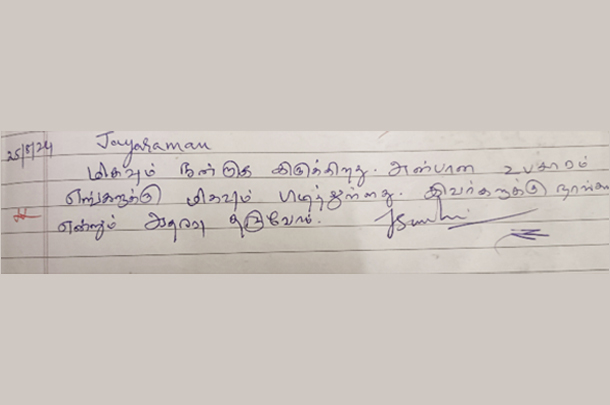 25/8/24 Jayaraman
மிகவும் நன்றாக இருக்கிறது. அன்பான உபசாரம்
எங்களுக்கு மிகவும் பிடித்துள்ளது. இவர்களுக்கு நாங்க
என்றும் ஆதரவு தருவோம்.